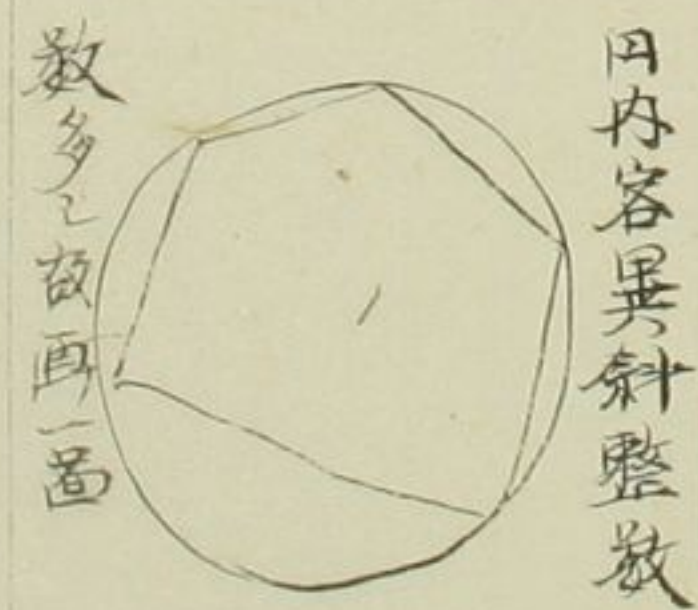 円内容異斜整数
数多之故画一图